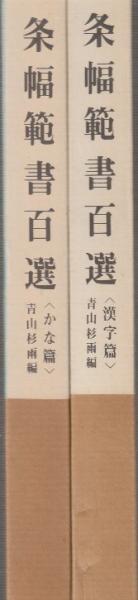 条幅範書百選
〈漢字篇〉
青山杉雨編
条幅範書百選
〈かな篇〉
青山杉雨編